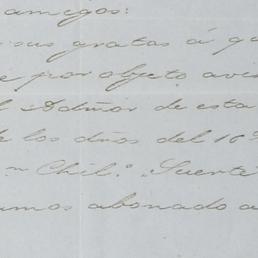 amigos:
sus gratas á q
e por objeto avis
l Admor de esta
e los dhos del 16
n Chil.º Suerte
amos abonado a